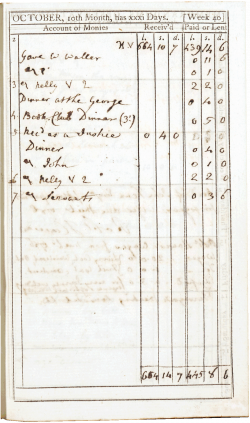 OCTOBER, 10th Month, has xxxi Days. [Week 40]
Account of Monies Receiv'd Paid or Lent
l. s. d. l. s. d.
664 10 7 439 14 6
Gave W Walter 0 11 6
0 1 0
3 Nelly V 2 2 2 0
Dinner at the George 0 4 0
4 Book Club Dinner 0 5 0
5 Rec'd as a Justice 0 4 0
Dinner
John 0 1 0
6 Nelly V 2 2 2 0
7 Servants 0 3 6
664 14 7 445 8 6